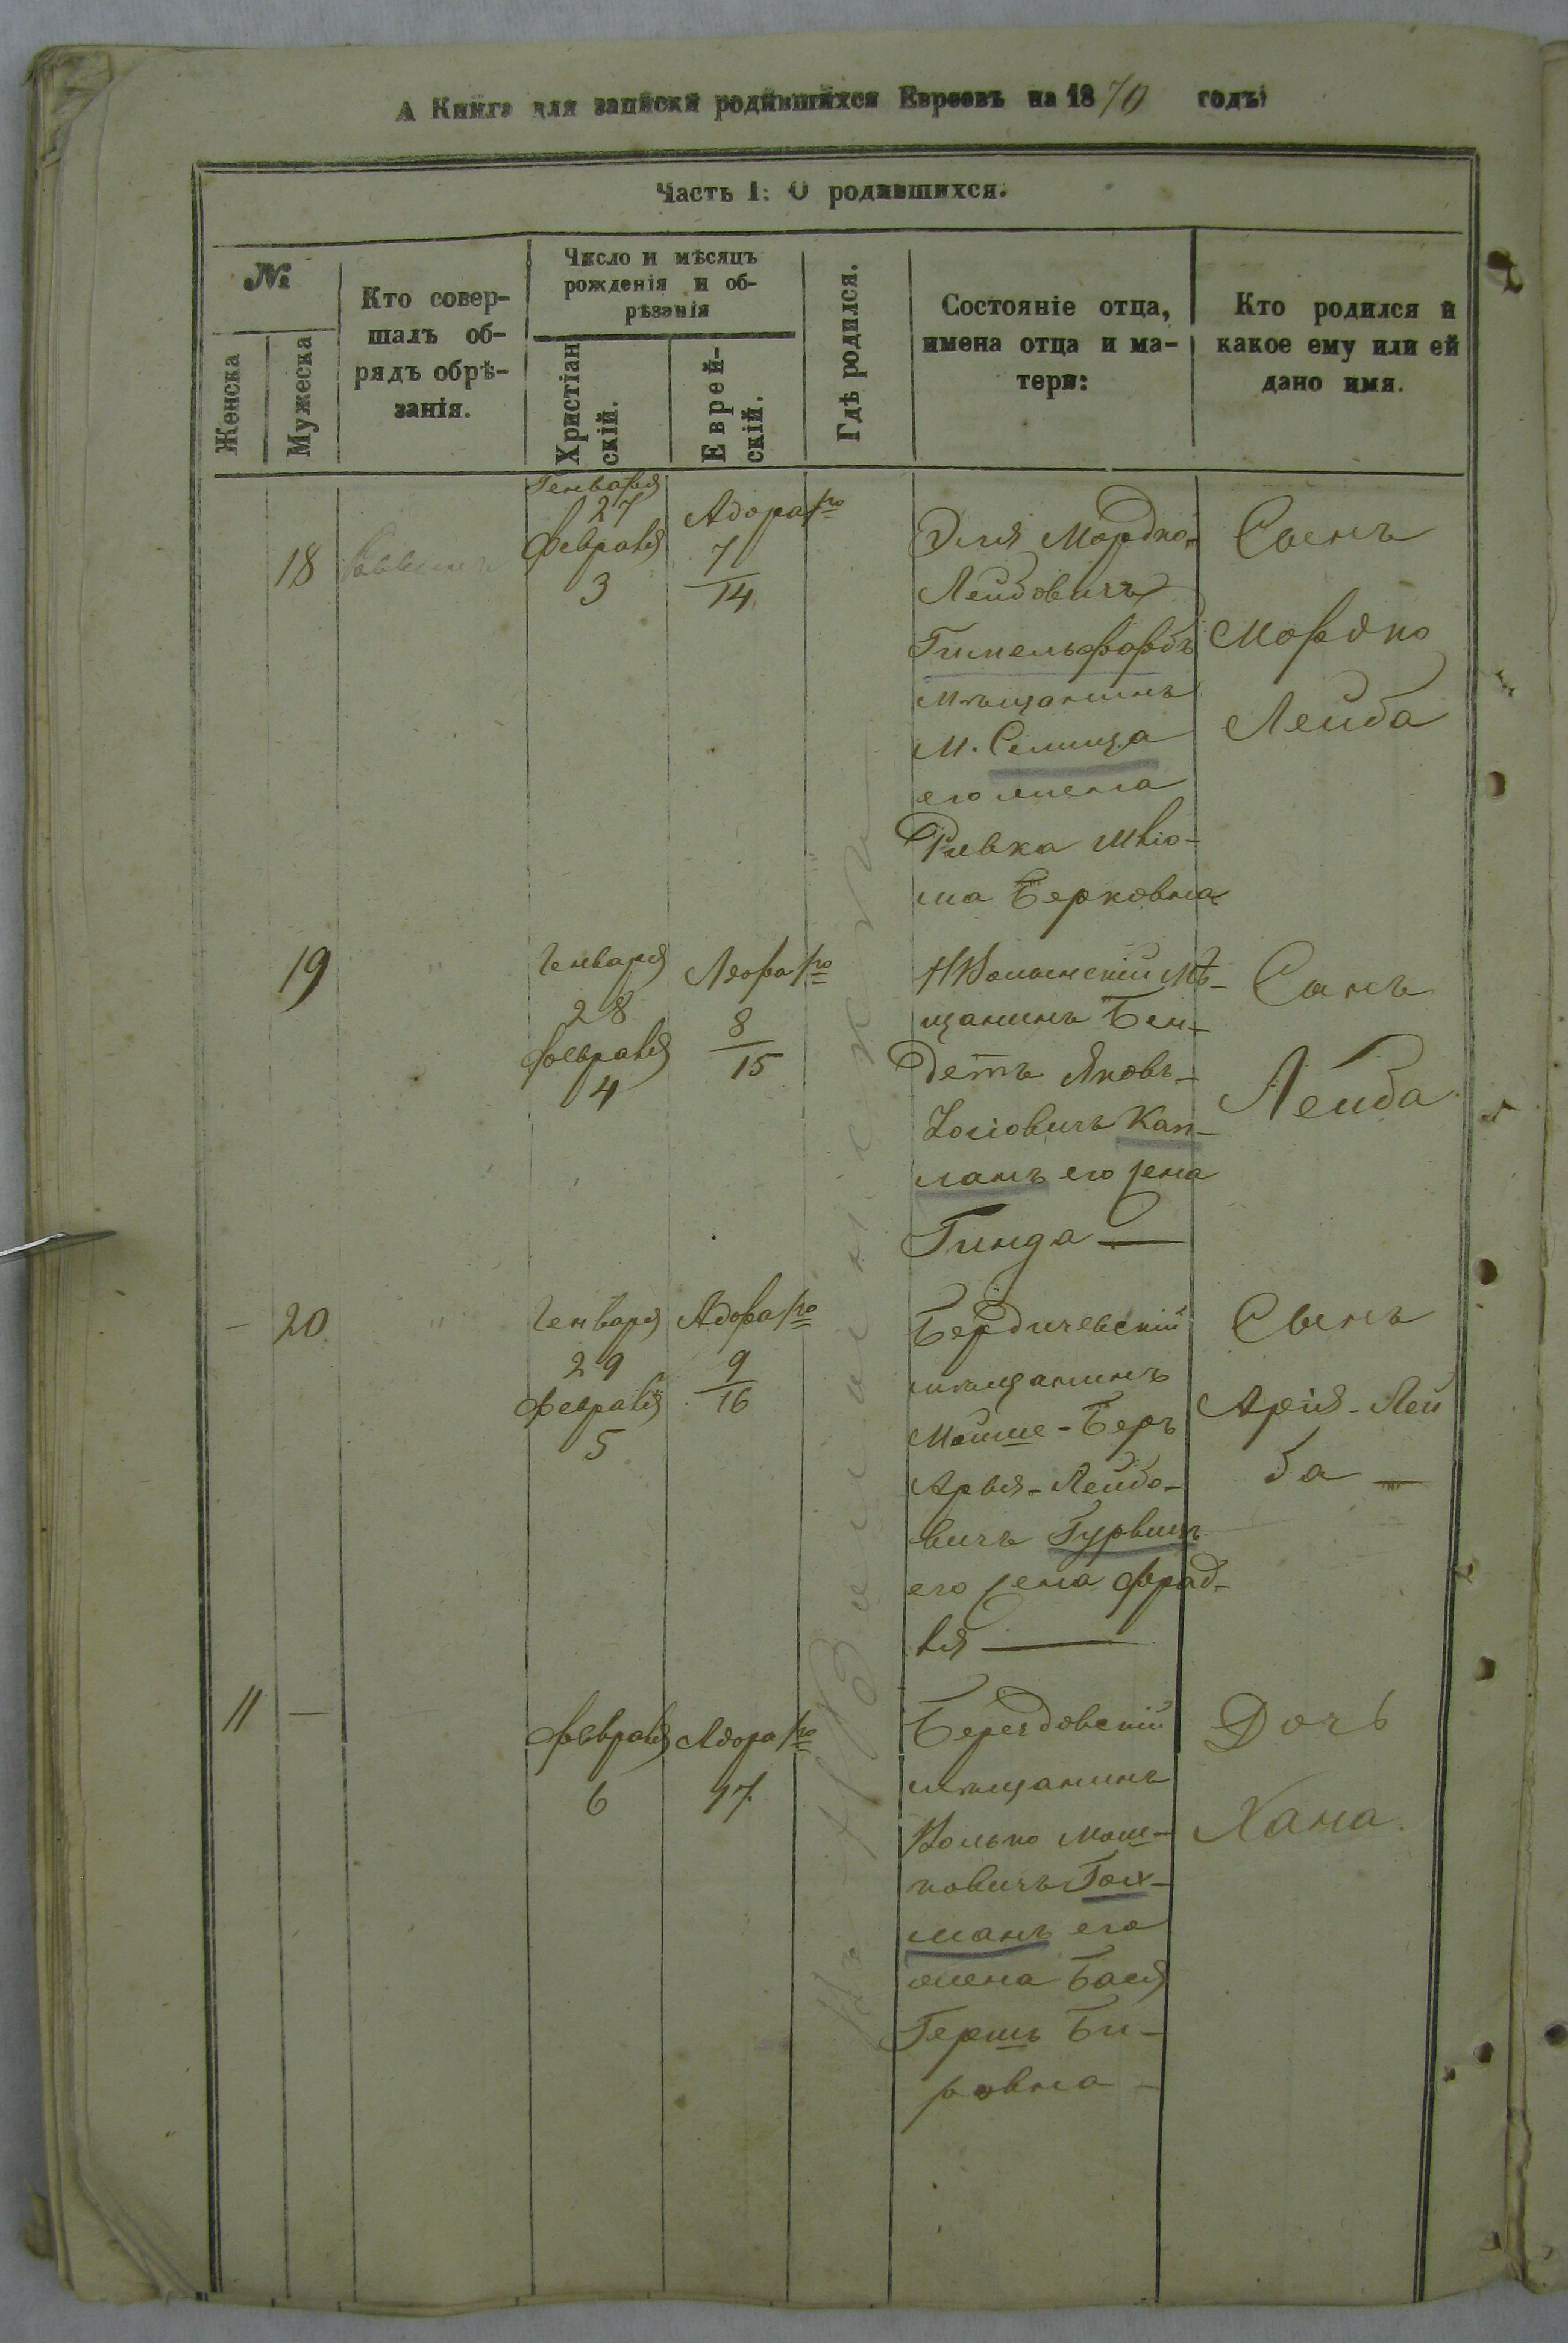 А Книга для записки родившихся Евреевъ на 1870 годъ:
Часть I: О родившихся.
№
Женска
Мужеска
Кто совер-
шалъ об-
рядъ обрѣ-
занія.
Число и мѣсяцъ
рожденія и об-
рѣзанія
Христіан
скій.
Еврей-
скій.
Гдѣ родился.
Состояніе отца,
имена отца и ма-
тери:
Кто родился и
какое ему или ей
дано имя.
18
Раввинъ
Генваря
27
Февраля
3
Адора 1го
7
14
Эля Мордко
Лейбовичъ
Гимельфарбъ
мѣщанинъ
м. Селища
его жена
Ривка
ма Берковна
Сынъ
Мордко
Лейба
19
"
Генваря
28
Февраля
4
Адора 1го
8
15
НВолынскій Мѣ-
щанинъ Бен-
детъ Яковъ-
Іосіовичъ Кап-
ланъ его жена
Гинда —
Сынъ
Лейба
— 20
"
Генваря
29
Февраля
5
Адора 1го
9
16
Бердичевскій
мѣщанинъ
Мойше-Беръ
Арья-Лейбо-
вичъ Гурвицъ
его жена Фрад-
ля —
Сынъ
Арія-Лей
ба —
11
—
Февраля
6
Адора 1го
17
Берездовскій
мѣщанинъ
Волько Мош-
ковичъ Гох-
манъ его
жена Бася
Гершъ Би-
ровна -
Дочь
Хана.